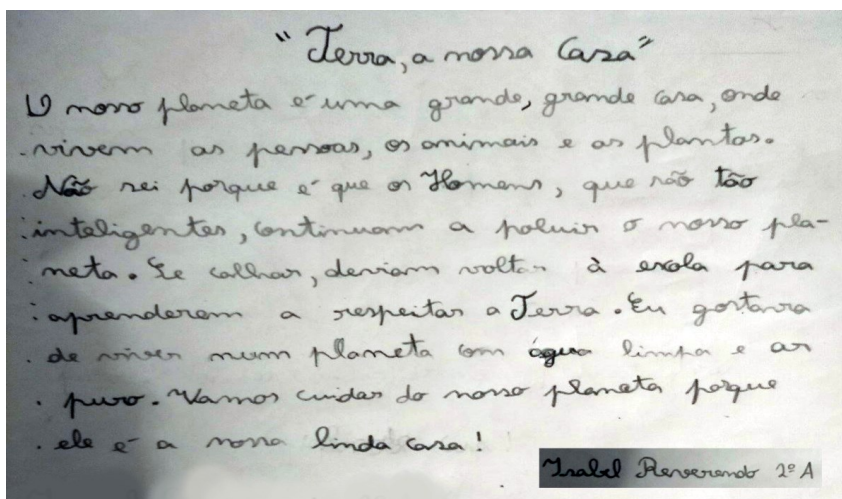 "Terra, a nossa Casa"
O nosso planeta é uma grande, grande casa, onde
vivem as pessoas, os animais e as plantas.
Não sei porque é que os Homens, que são tão
inteligentes, continuam a poluir o nosso pla-
neta. Se calhar, deviam voltar à escola para
aprenderem a respeitar a Terra. Eu gostava
de viver num planeta com água limpa e ar
puro. Vamos cuidar do nosso planeta porque
ele é a nossa linda casa!
Isabel Reverendo 2º A